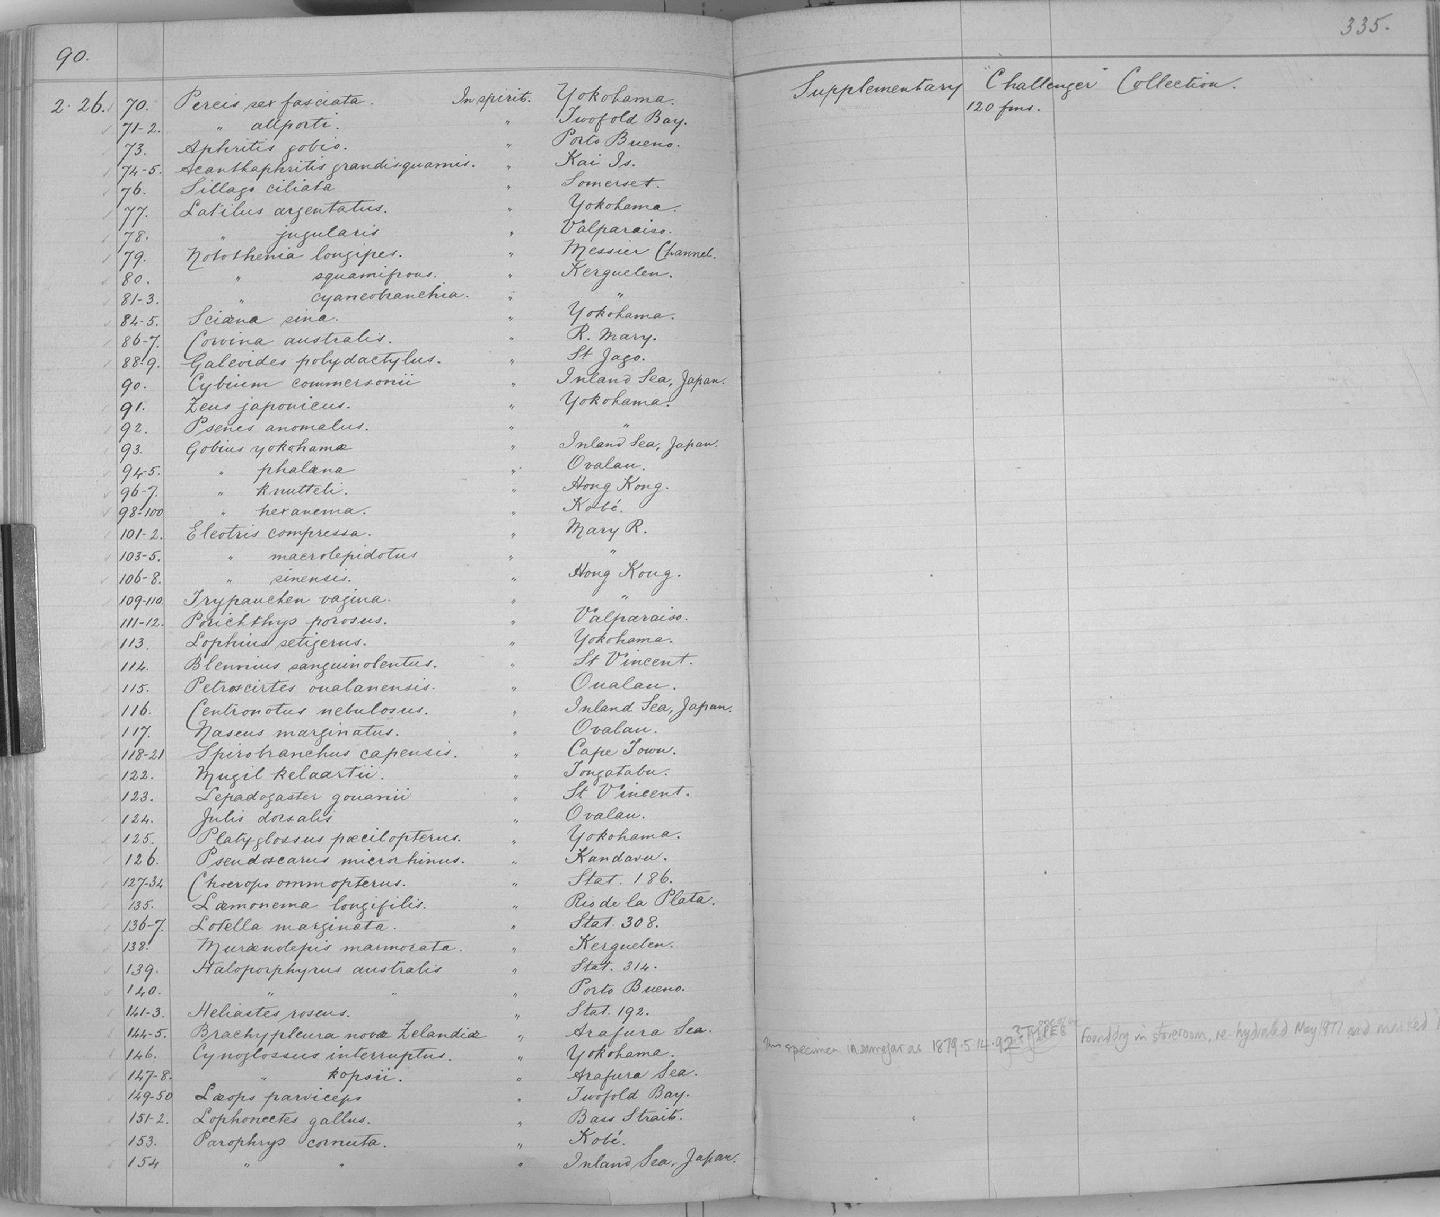 90.
335.
Supplementary "Challenger" Collection.
2. 26. 70. Percis sexfasciata. In spirit. Yokohama. 120 fms.
71-2. " allporti. " Twofold Bay.
73. Aphritis gobio. " Porto Bueno.
74-5. Acanthaphritis grandisquamis. " Kai Is.
76. Sillago ciliata " Somerset.
77. Latilus argentatus. " Yokohama.
78. " jugularis " Valparaiso.
79. Notothenia longipes. " Messier Channel.
80. " squamifrons. " Kerguelen.
81-3. " cyaneobranchia. " "
84-5. Sciæna sina. " Yokohama.
86-7. Corvina australis. " R. Mary.
88-9. Galeoides polydactylus. " St Jago.
90. Cybium commersonii " Inland Sea, Japan.
91. Zeus japonicus. " Yokohama.
92. Psenes anomalus. " "
93. Gobius yokohamæ " Inland Sea, Japan.
94-5. " phalæna " Ovalau.
96-7. " knutteli. " Hong Kong.
98-100 " hexanema. " Kobé.
101-2. Eleotris compressa. " Mary R.
103-5. " macrolepidotus " "
106-8. " sinensis. " Hong Kong.
109-110 Trypauchen vagina. " "
111-12. Porichthys porosus. " Valparaiso.
113. Lophius setigerus. " Yokohama.
114. Blennius sanguinolentus. " St Vincent.
115. Petroscirtes oualanensis. " Oualau.
116. Centronotus nebulosus. " Inland Sea, Japan.
117. Naseus marginatus. " Ovalau.
118-21 Spirobranchus capensis. " Cape Town.
122. Mugil kelaartii. " Tongatabu.
123. Lepadogaster gouanii " St Vincent.
124. Julis dorsalis " Ovalau.
125. Platyglossus pœcilopterus. " Yokohama.
126. Pseudoscarus microrhinus. " Kandavu.
127-34 Choerops ommopterus. " Stat. 186.
135. Læmonema longifilis. " Rio de la Plata.
136-7. Lotella marginata. " Stat. 308.
138. Murænolepis marmorata. " Kerguelen.
139. Haloporphyrus australis " Stat. 314.
140. " " " Porto Bueno.
141-3. Heliastes roseus. " Stat. 192.
144-5. Brachypleura novæ Zelandiæ " Arafura Sea.
146. Cynoglossus interruptus. " Yokohama. This specimen in same jar as 1879.5.14.92 ? TYPES Found dry in storeroom, re-hydrated May 1977 and marked
147-8. " kopsii. " Arafura Sea.
149-50 Læops parviceps " Twofold Bay.
151-2. Lophonectes gallus. " Bass Strait.
153. Parophrys cornuta. " Kobé.
154 " " " Inland Sea, Japan.